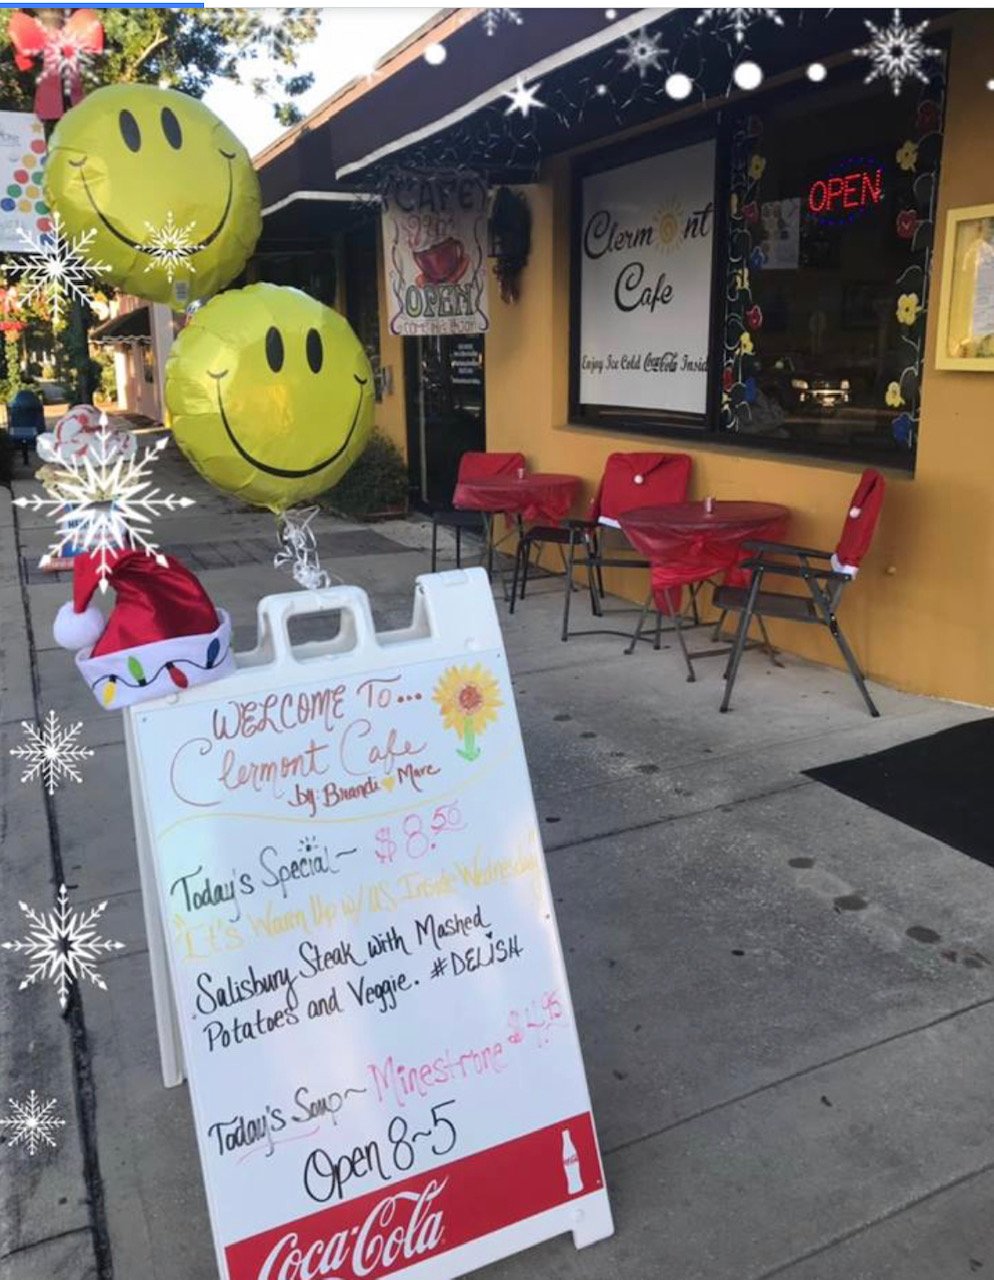 CAFE
OPEN
Clermont
Cafe
Enjoy Ice Cold Coca-Cola Inside
OPEN
WELCOME TO...
Clermont Cafe
by: Brandi Marc
Today's Special~ $8.50
"It's Warm Up w/ US Inside Wednesday!"
Salisbury Steak with Mashed
Potatoes and Veggie. #DELISH
Today's Soup~ Minestrone $4.95
Open 8~5
Coca-Cola